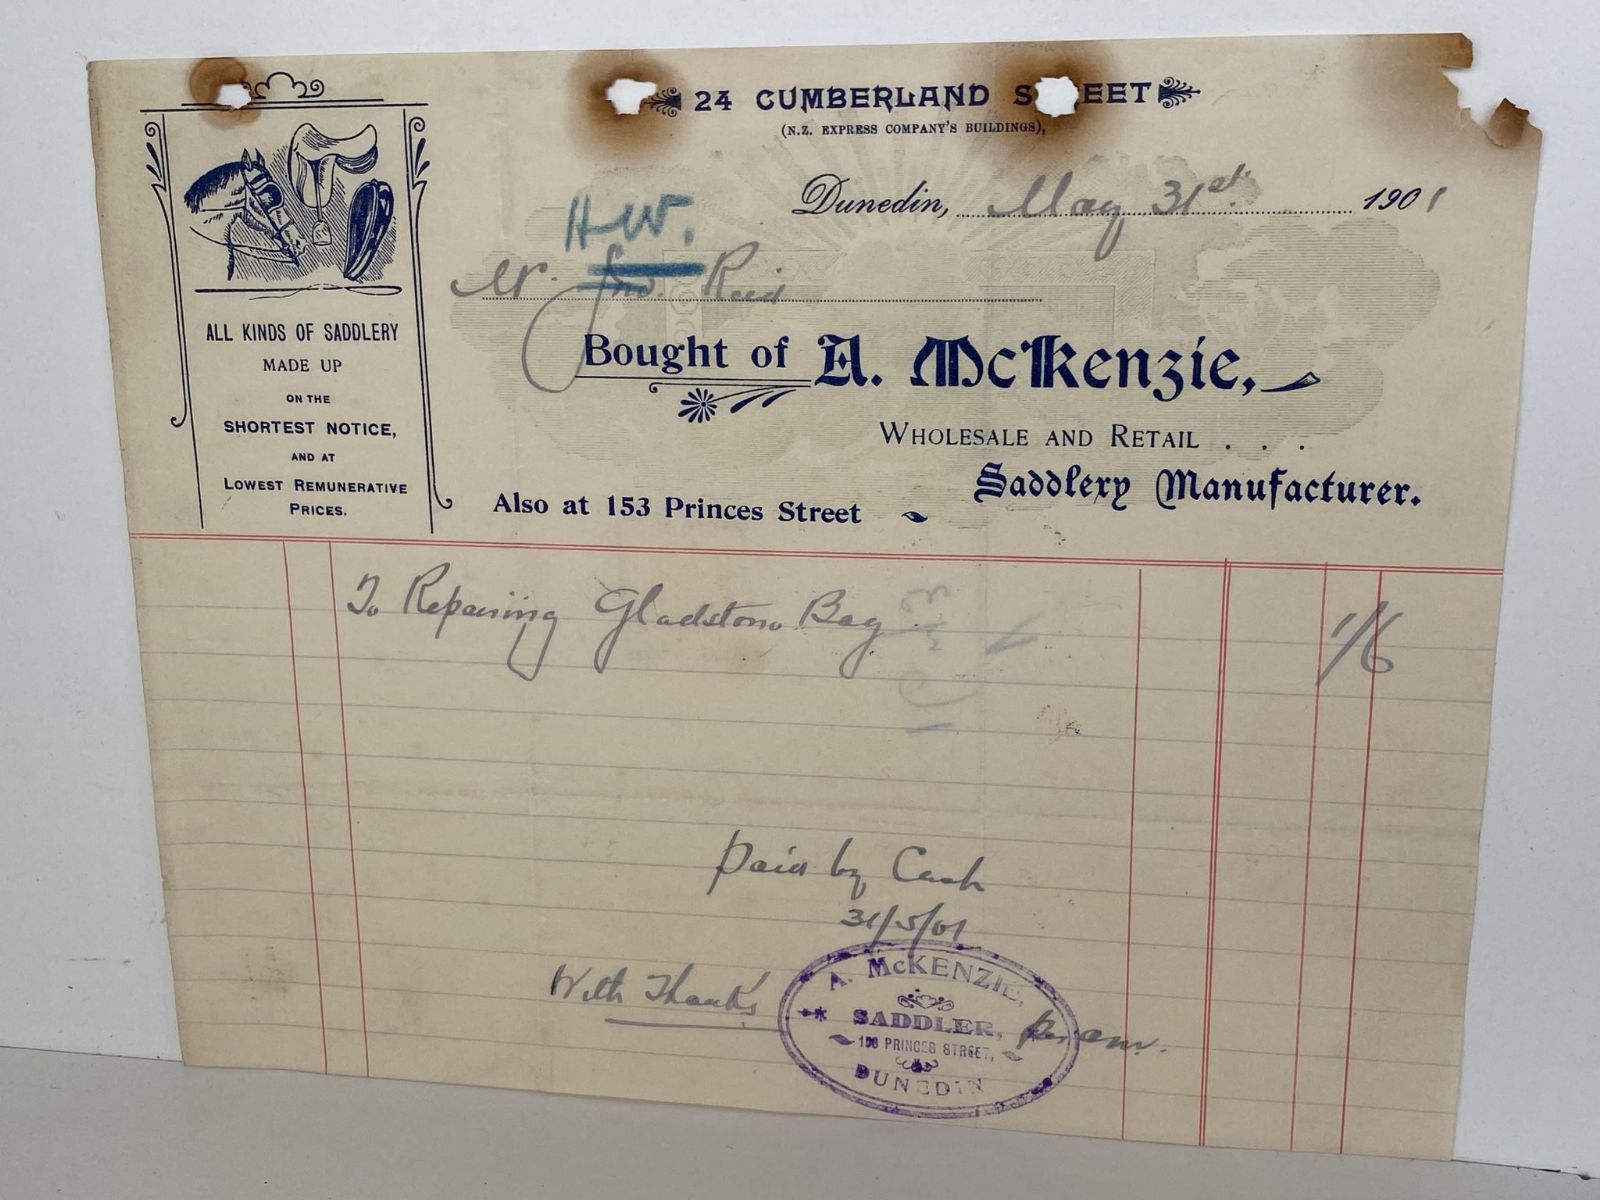 24 CUMBERLAND S EET
(N.Z. EXPRESS COMPANY'S BUILDINGS),
Dunedin, May 31st 1901
H.W.
Mr. Jno. Reid
Bought of A. McKenzie,
WHOLESALE AND RETAIL . . .
Saddlery Manufacturer.
Also at 153 Princes Street
ALL KINDS OF SADDLERY
MADE UP
ON THE
SHORTEST NOTICE,
AND AT
LOWEST REMUNERATIVE
PRICES.
To Repairing Gladstone Bag 1/6
Paid by Cash
31/5/01
With Thanks
A. McKENZIE,
SADDLER,
PRINCES STREET,
DUNEDIN